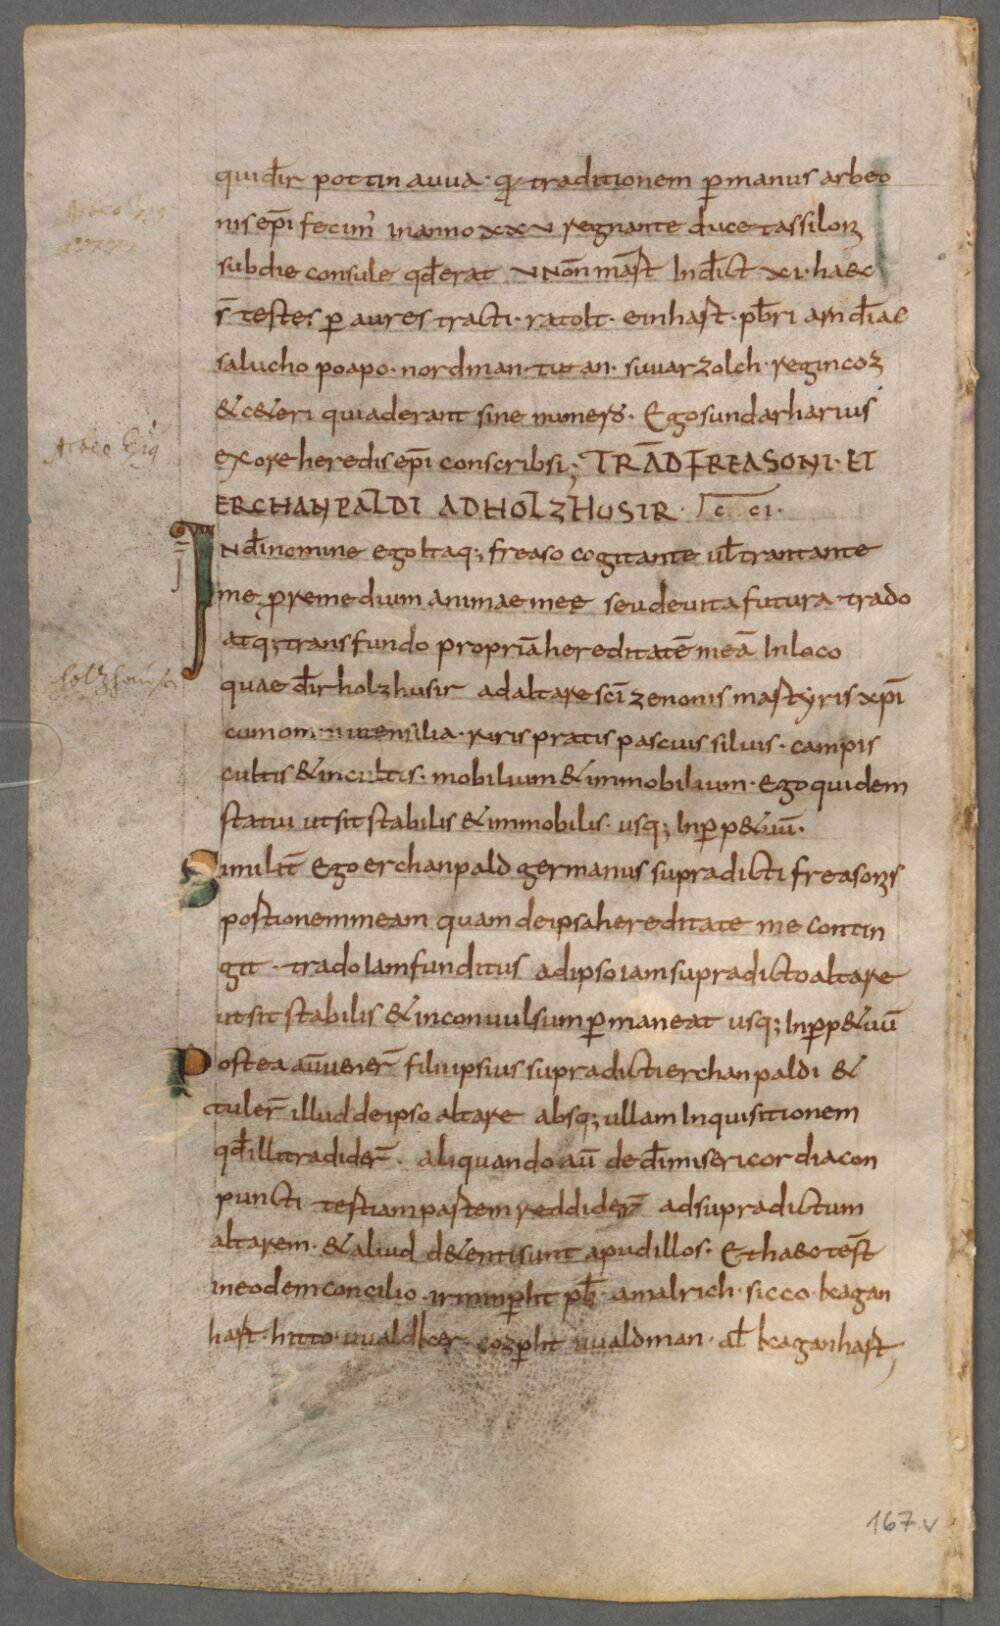 quidr̄ pottin auua · qͥ traditionem ꝑ manus arbeo
nis ep̄i fecim᷒ in anno xxv regnante duce tassilone
sub die consule qd̄ erat v Non mar̄t Indict̄ xi · haec
s̄ testes per aures tracti · ratolt · einhart · pb̄ri arn diac̄
salucho poapo · nordman tutan · suuarzolch · regincoz
&c&eri qui aderant sine numero · Ego sundarharius
ex ore heredis ep̄i conscribsi; TRAD̄ FREASONI · ET
ERCHANPALDI AD HOLZHUSIR · cci ·
IN dī nomine ego Itaq; freaso cogitante ul̄ tractante
me ꝓ remedium animae meę seu de uita futura trado
atq; transfundo propriā hereditatē meā In loco
quae dr̄ holzhusir ad altare sc̄i zenonis martyris xp̄i
cum omni utensilia · ruris pratis pascuis siluis · campis
cultis & incultis · mobilium & immobilium · ego quidem
statui ut sit stabilis & immobilis · usq; In ꝑp&uū ·
Similit̄ Ego erchanpald germanus supradicti freasonis
portionem meam quam de ipsa hereditate me contin
git · trado Iam funditus ad ipso iam supradicto altare
ut sit stabilis & inconuulsum ꝑmaneat usq; In ꝑp&uū
Postea aū uener̄ filii ipsius supradicti erchanpaldi &
tuler̄ illud de ipso altare absq; ullam Inquisitionem
qd̄ illi tradider̄ · aliquando aū de dī misericordia con
puncti tertiam partem reddider̄ ad supradictum
altarem · & aliud d&enti sunt apud illos · Et haec test̄
in eodem concilio irminꝑht pb̄ · amalrich · sicco · keagan
hart · hitto · uualdker cozꝑht uualdman · al̄ keaganhart,
Arbeo Epg
holzhausn
167 v